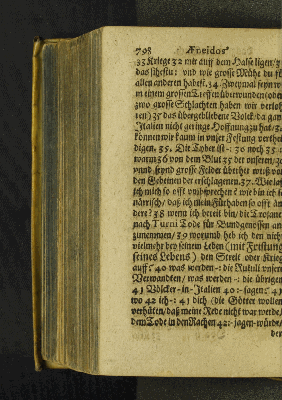 798 Æneidos
33 Kriege 32 mir auff dem Halse ligen/
das siehstu: und wie grosse Mühe du
allen anderen habest. 34 Zweymal seyn
in einem grossen Treffen überwunden (oder
zwo grosse Schlachten haben wir verloh
ren) 35 das übergebliebene Volck da gan
Italien nicht geringe Hoffnung zu hat/
können wir kaum in unser Festung verthei
digen. 35. Die Tyber ist-: 30 noch 35
warm 36 von dem Blut 37 der unseren/
unnd seynd grosse Felder überher weiß von
den Gebeinen der erschlagenen. 37. Wie
ich mich so offt und bin ich
närrisch/ daß ich mein Fürhaben so offt än
dere? 38 wenn ich bereit bin/ die Trojaner
nach Turni Tode für Bundsgenossen an
zunemmen/ 39 worumb heb ich den nicht
vielmehr bey seinem Leben (mit Fristung
seines Lebens) den Streit oder Krieg
auff? 40 was werden-: die Rutuli unser
Verwandten/ was werden -: die übrigen
41 Völcker-in-Italien 40 -: sagen/
wo 42 ich -: 41 dich (die Götter wollen
verhüten/ daß meine Rede nicht war werde/
dem Tode in den Rachen 42: jagen-würde/
der